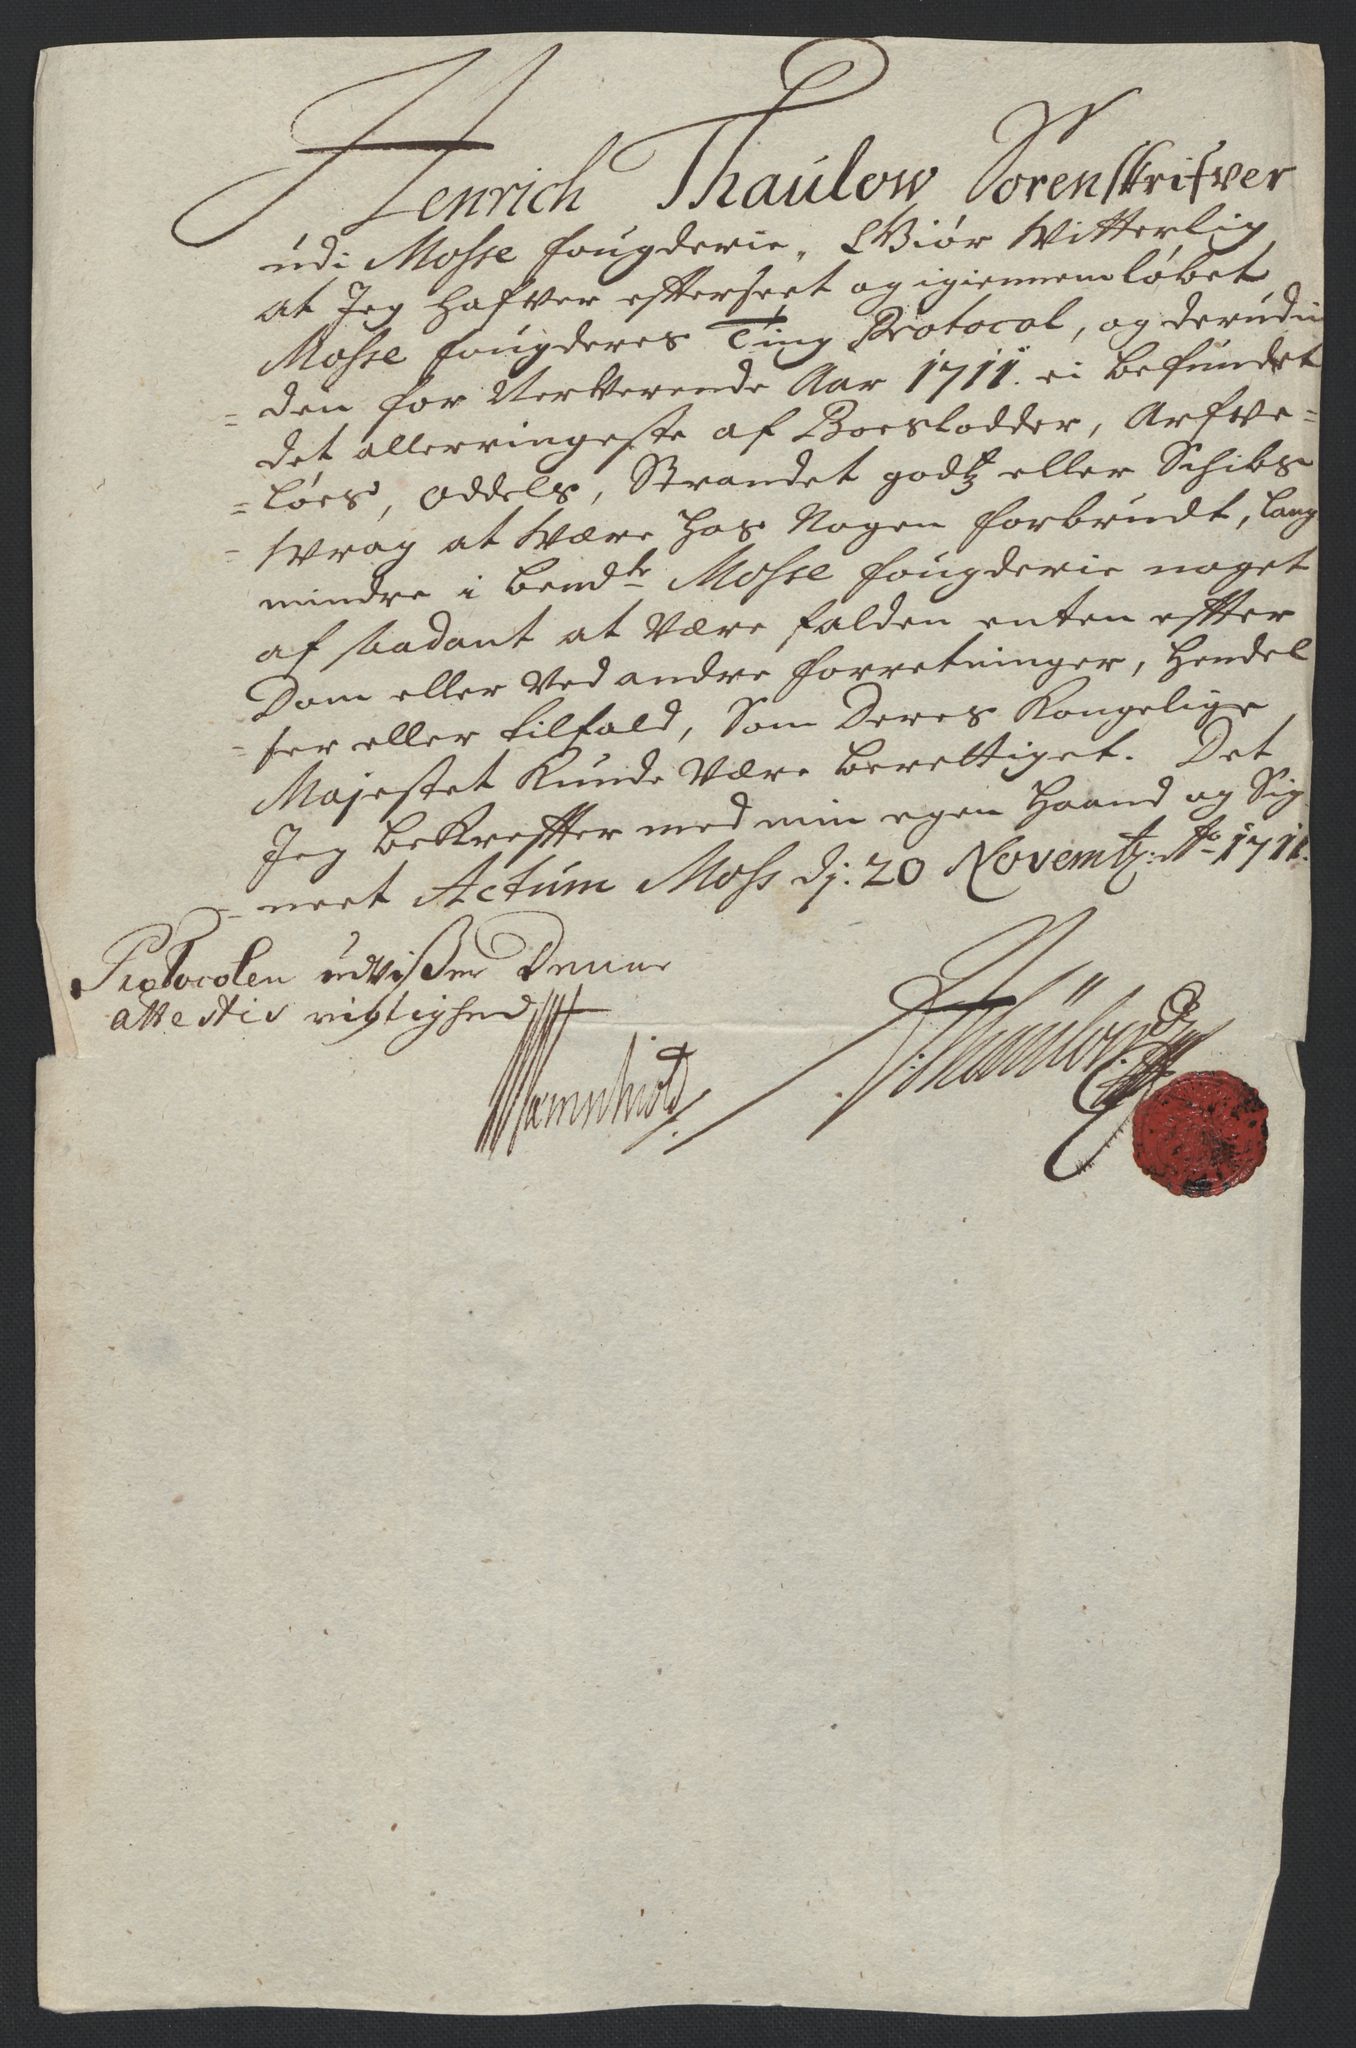 Henrich Thaulow Sorenskrifver
udi Mosse fougderie, Giør Witterlig
at Jeg hafver effterseet og igiennemløbet
Mosse fougderes Ting Protocol, og derudi
= den for Nerverende Aar 1711. ei befundet
det allerringeste af Boeslodder, Arfve=
= løes, Oddels, Strandet godtz eller Schibs
= wrag at Være hos Nogen forbrudt, lang
mindre i bemdte Mosse fougderie noget
af saadant at Være falden enten effter
Dom eller Ved andre forretninger, Hendel
= ser eller tilfald, Som Deres Kongelige
Majestet Kunde Være berettiget. Det
Jeg bekreffter med min egen Haand og Sig
= neet Actum Moss dj: 20 Novembr: Ao 1711.
Protocolen udvißer Denne
attestis rigtighed
HThaulow